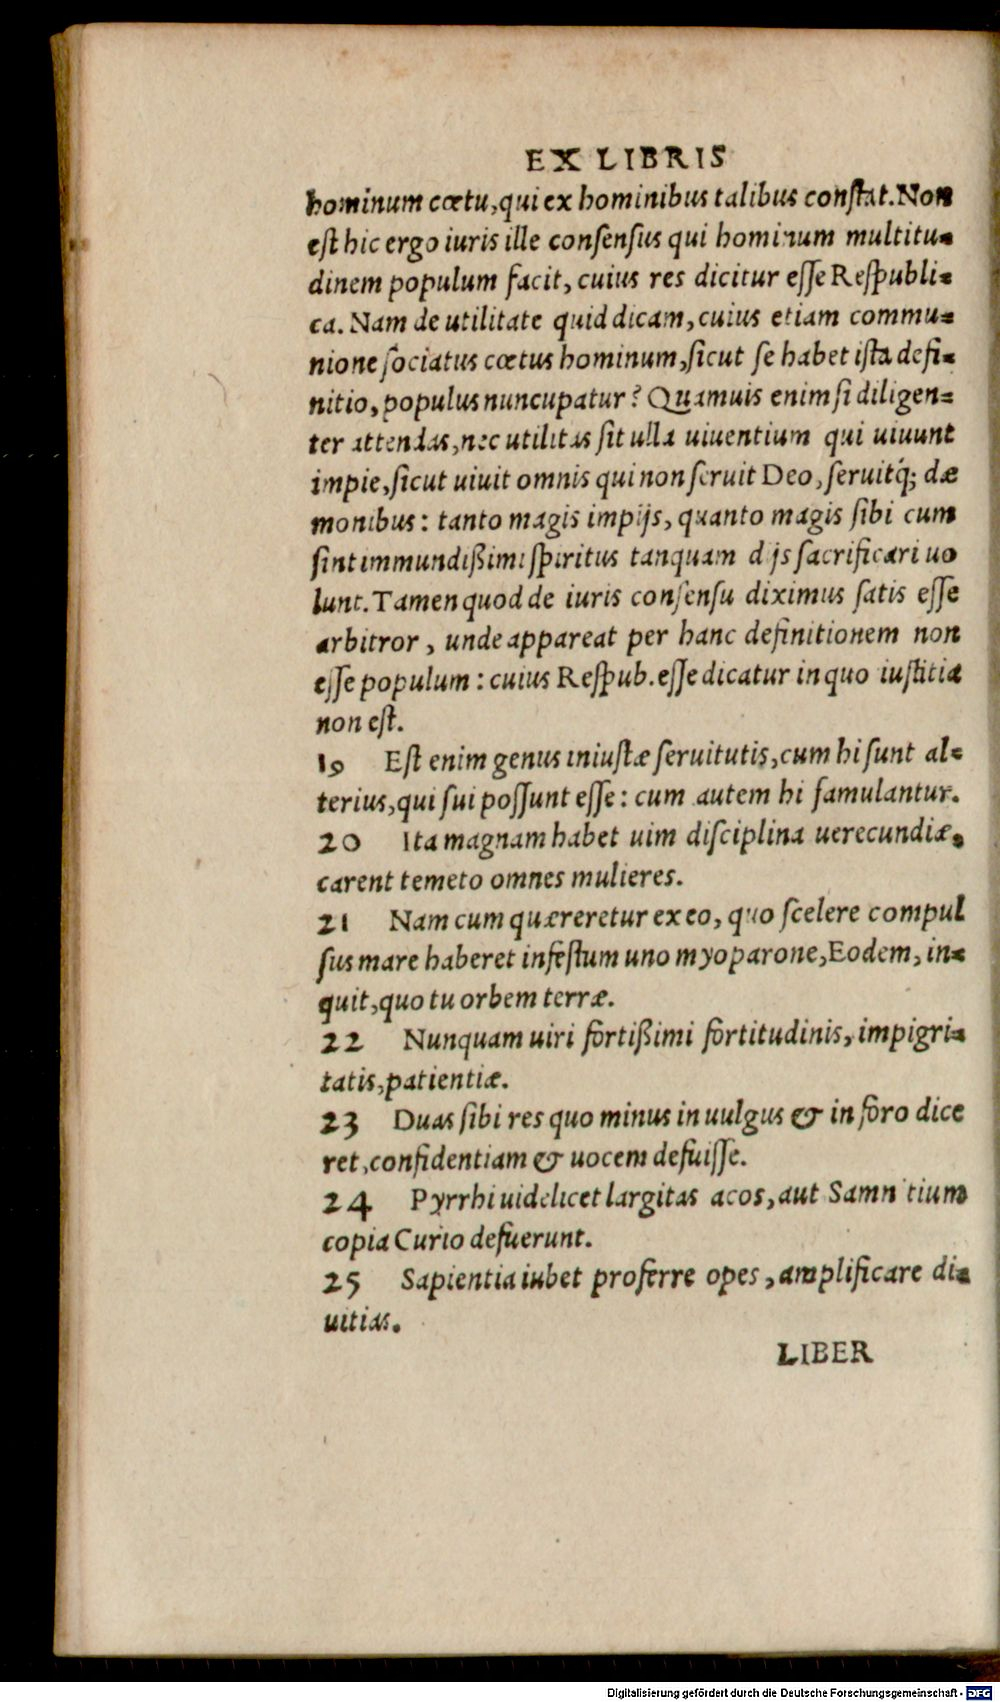 EX LIBRIS
hominum cœtu, qui ex hominibus talibus conſtat. Non
eſt hic ergo iuris ille conſenſus qui hominum multitu=
dinem populum facit, cuius res dicitur eſſe Reſpubli=
ca. Nam de utilitate quid dicam, cuius etiam commu=
nione ſociatus cœtus hominum, ſicut ſe habet iſta defi=
nitio, populus nuncupatur? Quamuis enim ſi diligen=
ter attendas, nec utilitas ſit ulla uiuentium qui uiuunt
impie, ſicut uiuit omnis qui non ſeruit Deo, ſeruitq́; dæ
monibus: tanto magis impijs, quanto magis ſibi cum
ſint immundißimi ſpiritus tanquam dijs ſacrificari uo
lunt. Tamen quod de iuris conſenſu diximus ſatis eſſe
arbitror, unde appareat per hanc definitionem non
eſſe populum: cuius Reſpub. eſſe dicatur in quo iuſtitia
non eſt.
19 Eſt enim genus iniuſtæ ſeruitutis, cum hi ſunt al=
terius, qui ſui poſſunt eſſe: cum autem hi famulantur.
20 Ita magnam habet uim diſciplina uerecundiæ,
carent temeto omnes mulieres.
21 Nam cum quæreretur ex eo, quo ſcelere compul
ſus mare haberet infeſtum uno myoparone, Eodem, in=
quit, quo tu orbem terræ.
22 Nunquam uiri fortißimi fortitudinis, impigri=
tatis, patientiæ.
23 Duas ſibi res quo minus in uulgus & in foro dice
ret, confidentiam & uocem defuiſſe.
24 Pyrrhi uidelicet largitas acos, aut Samnitium
copia Curio defuerunt.
25 Sapientia iubet proferre opes, amplificare di=
uitias.
LIBER
Digitalisierung gefördert durch die Deutsche Forschungsgemeinschaft - DFG